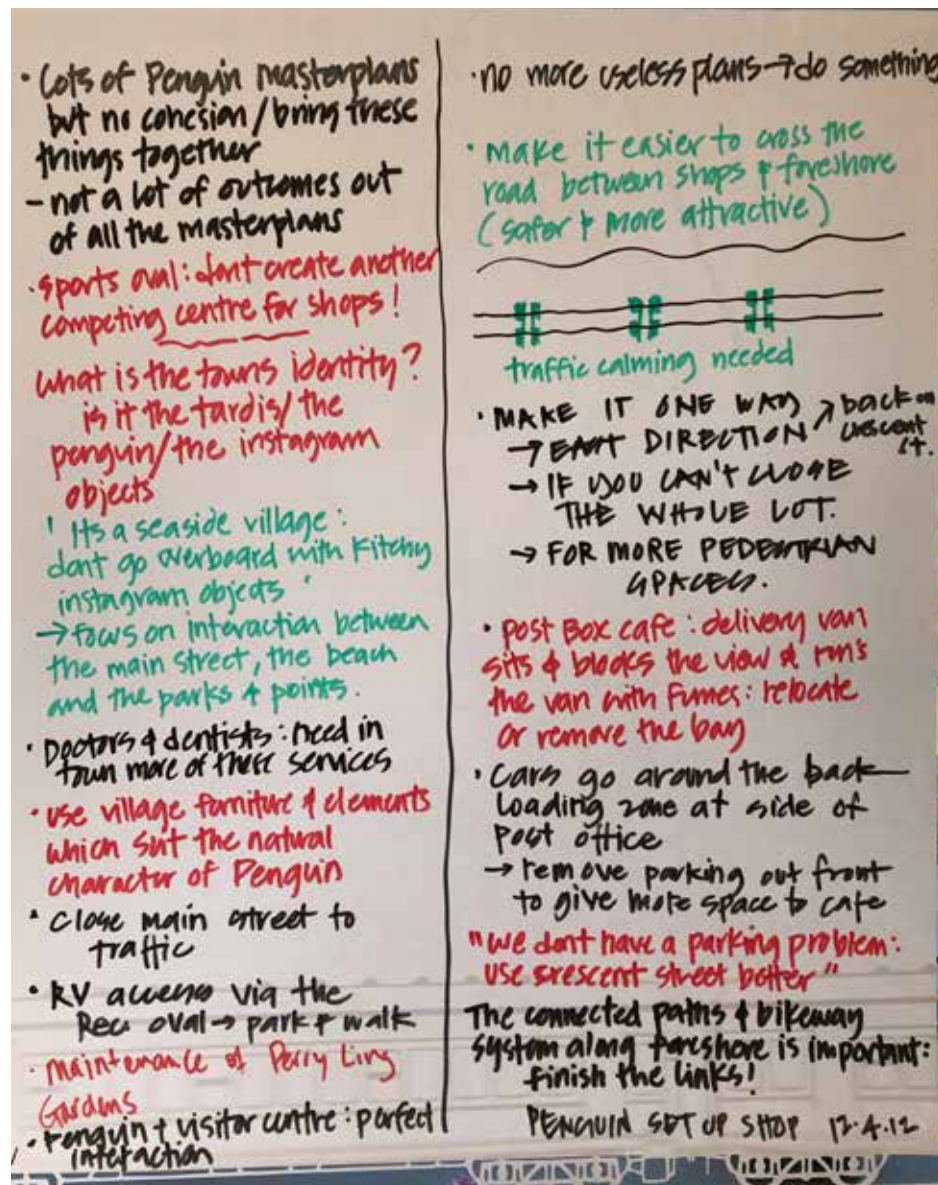 · Lots of Penguin masterplans
but no cohesion / bring these
things together
- not a lot of outcomes out
of all the masterplans
· sports oval: dont create another
competing centre for shops!
what is the towns identity?
is it the tardis/ the
penguin/ the instagram
objects
' Its a seaside village:
dont go overboard with kitchy
instagram objects '
→ focus on interaction between
the main street, the beach
and the parks & points.
· Doctors & dentists: need in
town more of these services
· use village furniture & elements
which suit the natural
character of Penguin
· Close main street to
traffic
· RV access via the
Rec oval → park & walk
· maintenance of Perry Ling
Gardens
· Penguin + visitor centre: perfect
interaction
· no more useless plans → do something
· make it easier to cross the
road between shops & foreshore
(safer & more attractive)
traffic calming needed
· MAKE IT ONE WAY ↗ back on
→ EAST DIRECTION crescent
st.
→ IF YOU CAN'T CLOSE
THE WHOLE LOT.
→ FOR MORE PEDESTRIAN
SPACES.
· Post Box cafe: delivery van
sits & blocks the view & run's
the van with fumes: relocate
or remove the bay
· Cars go around the back
Loading zone at side of
Post office
→ remove parking out front
to give more space to cafe
"we dont have a parking problem:
use crescent street better"
The connected paths & bikeway
system along foreshore is important:
finish the links!
PENGUIN SET UP SHOP 12.4.12